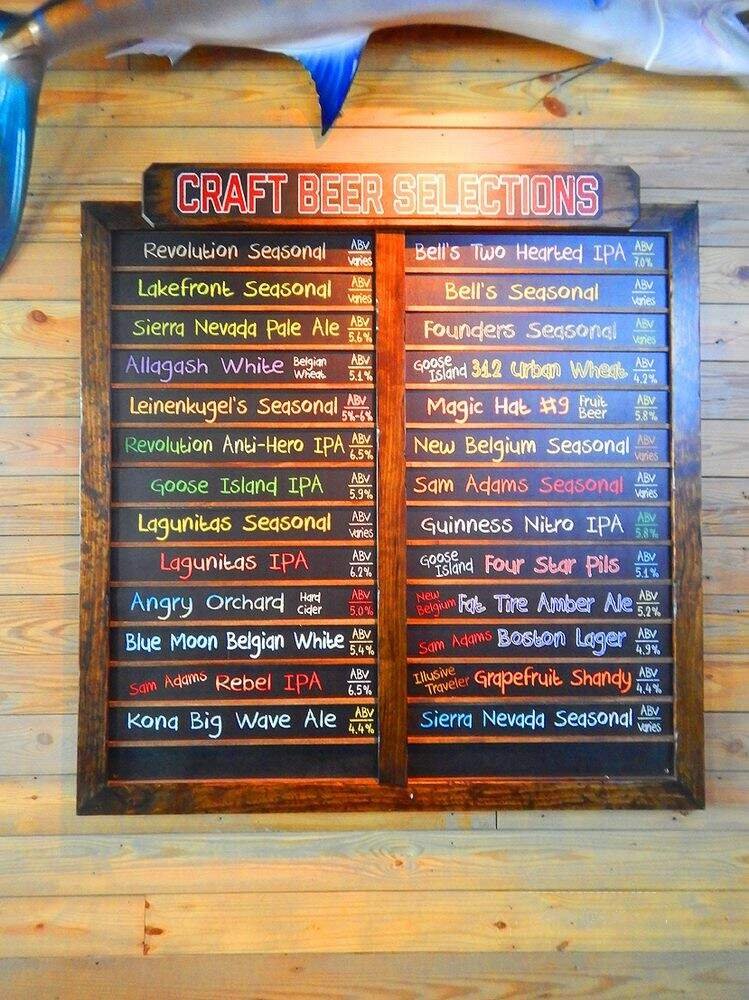 CRAFT BEER SELECTIONS
Revolution Seasonal ABV varies
Lakefront Seasonal ABV varies
Sierra Nevada Pale Ale ABV 5.6%
Allagash White Belgian Wheat ABV 5.1%
Leinenkugel's Seasonal ABV 5%-6%
Revolution Anti-Hero IPA ABV 6.5%
Goose Island IPA ABV 5.9%
Lagunitas Seasonal ABV varies
Lagunitas IPA ABV 6.2%
Angry Orchard Hard Cider ABV 5.0%
Blue Moon Belgian White ABV 5.4%
Sam Adams Rebel IPA ABV 6.5%
Kona Big Wave Ale ABV 4.4%
Bell's Two Hearted IPA ABV 7.0%
Bell's Seasonal ABV varies
Founders Seasonal ABV varies
Goose Island 312 Urban Wheat ABV 4.2%
Magic Hat #9 Fruit Beer ABV 5.8%
New Belgium Seasonal ABV varies
Sam Adams Seasonal ABV varies
Guinness Nitro IPA ABV 5.8%
Goose Island Four Star Pils ABV 5.1%
New Belgium Fat Tire Amber Ale ABV 5.2%
Sam Adams Boston Lager ABV 4.9%
Illusive Traveler Grapefruit Shandy ABV 4.4%
Sierra Nevada Seasonal ABV varies